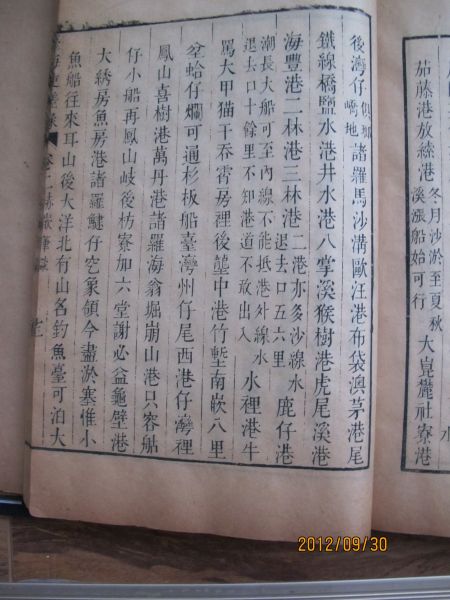 茄藤港放縤港 冬月沙淤至夏秋
溪漲船始可行 大崑麓社寮港
後灣仔 俱鄉
嶠地 諸羅馬沙溝歐汪港布袋澳茅港尾
鐵線橋鹽水港井水港八掌溪猴樹港虎尾溪港
海豐港二林港三林港 二港亦多沙線水
退去口五六里 鹿仔港
潮長大船可至內線不能抵港外線水
退去口十餘里不知港道不敢出入 水裡港牛
罵大甲猫干吞霄房裡後壠中港竹塹南嵌八里
坌蛤仔爛可通杉板船臺灣州仔尾西港仔灣裡
鳳山喜樹港萬丹港諸羅海翁堀崩山港只容舢
仔小船再鳳山岐後枋寮加六堂謝必益龜壁港
大綉房魚房港諸羅鱟仔穵象領今盡淤塞惟小
魚船往來耳山後大洋北有山名釣魚臺可泊大
卷二赤嵌筆談
2012/09/30